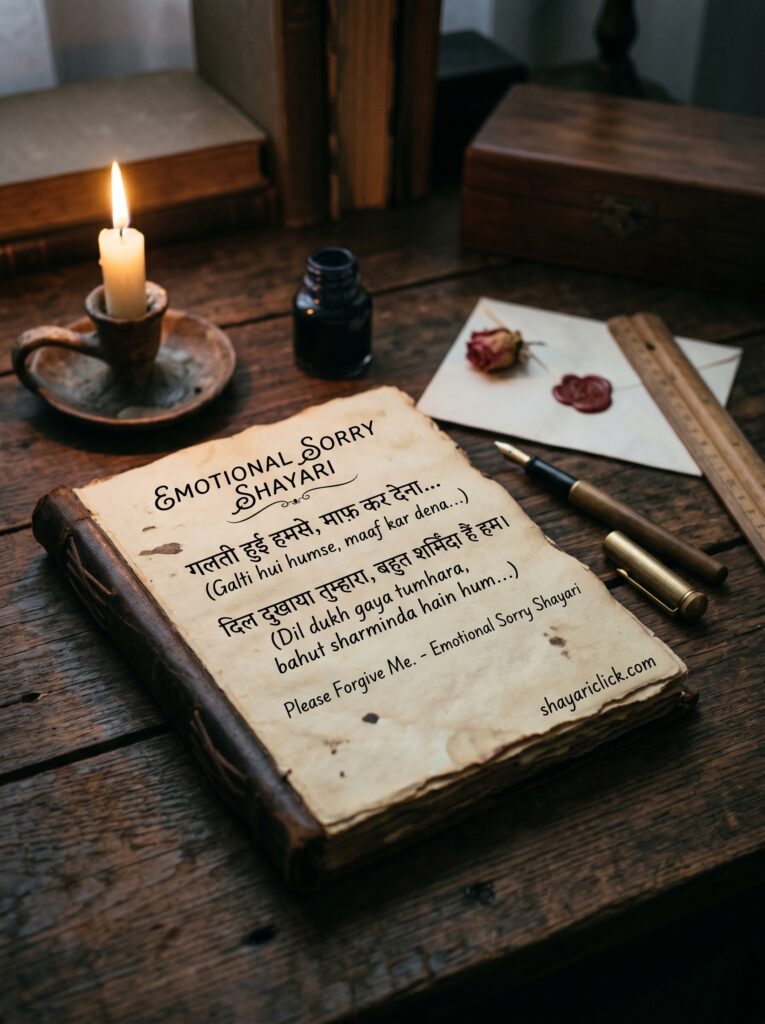 EMOTIONAL SORRY
SHAYARI
गलती हुई हमसे, माफ़ कर देना...
(Galti hui humse, maaf kar dena...)
दिल दुखाया तुम्हारा, बहुत शर्मिंदा हैं हम।
(Dil dukh gaya tumhara,
bahut sharminda hain hum...)
Please Forgive Me. - Emotional Sorry Shayari
shayariclick.com